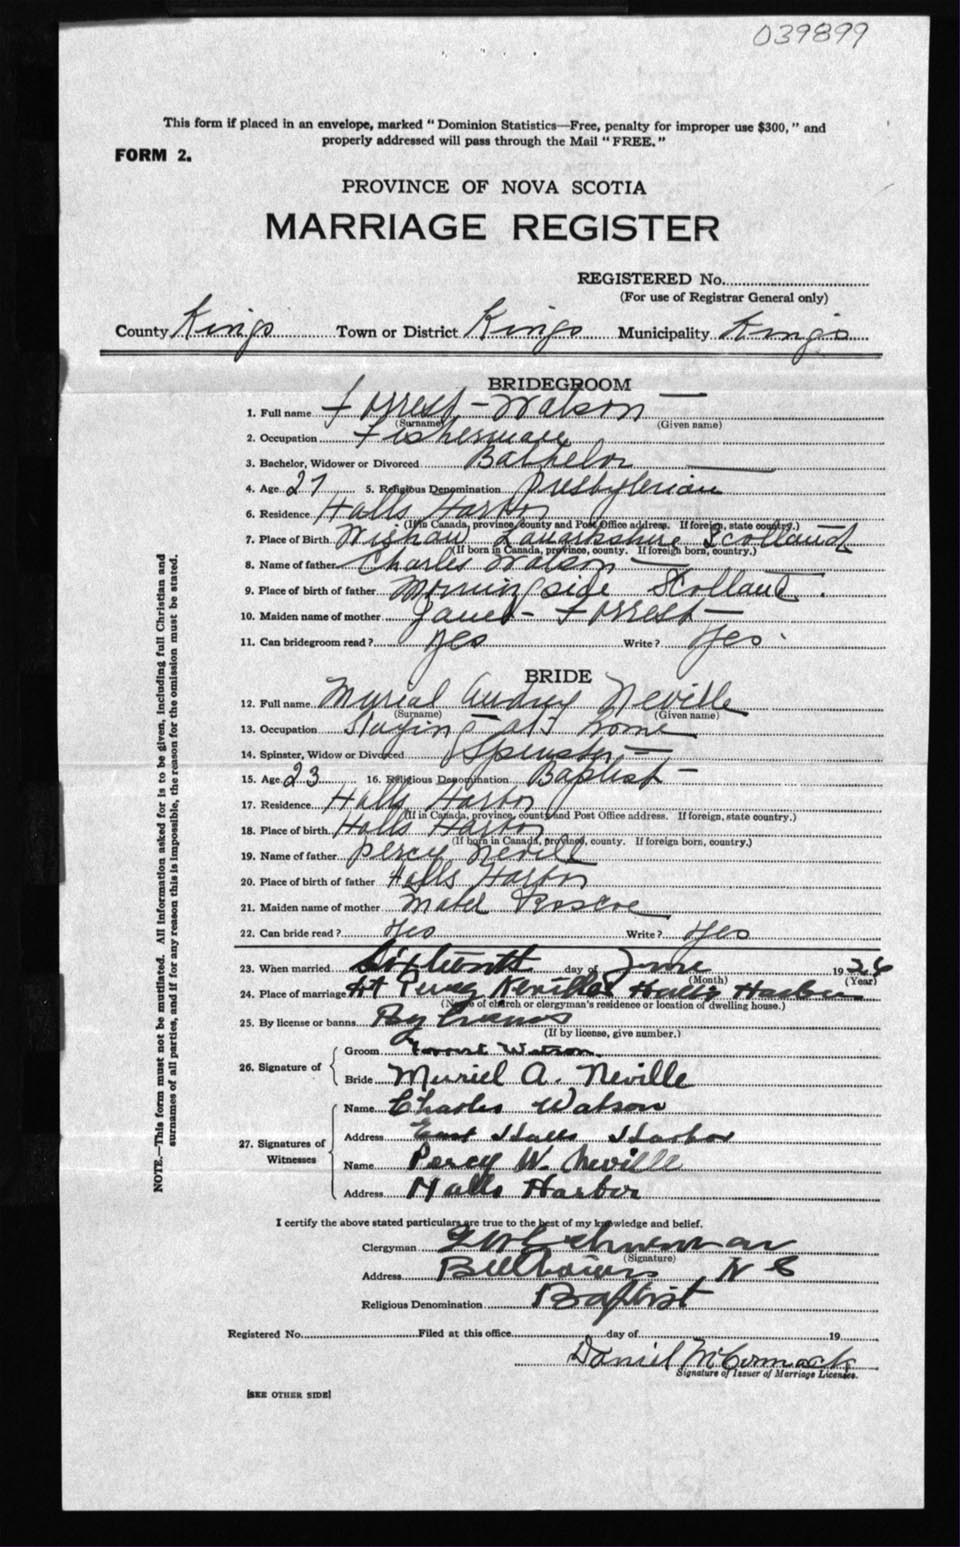 039899
This form if placed in an envelope, marked "Dominion Statistics—Free, penalty for improper use $300," and
properly addressed will pass through the Mail "FREE."
FORM 2.
PROVINCE OF NOVA SCOTIA
MARRIAGE REGISTER
REGISTERED No.
(For use of Registrar General only)
County Kings Town or District Kings Municipality Kings
BRIDEGROOM
1. Full name Forrest - Watson
(Surname) (Given name)
2. Occupation Fisherman
3. Bachelor, Widower or Divorced Bathelor
4. Age 27 5. Religious Denomination Presbyterian
6. Residence Halls Harbor
(If in Canada, province, county and Post Office address. If foreign, state country.)
7. Place of Birth Wishaw Lanarkshire Scotland
(If born in Canada, province, county. If foreign born, country.)
8. Name of father Charles Watson
9. Place of birth of father Morningside Scotland.
10. Maiden name of mother Janet - Forrest
11. Can bridegroom read? Yes Write? Yes
BRIDE
12. Full name Murial Audrey Neville
(Surname) (Given name)
13. Occupation Staying at home
14. Spinster, Widow or Divorced Spinster
15. Age 23 16. Religious Denomination Baptist
17. Residence Halls Harbor
(If in Canada, province, county and Post Office address. If foreign, state country.)
18. Place of birth Halls Harbor
(If born in Canada, province, county. If foreign born, country.)
19. Name of father Percy Nevill
20. Place of birth of father Halls Harbor
21. Maiden name of mother Mabel Roscoe
22. Can bride read? Yes Write? Yes
23. When married Sixteenth day of June 1926
(Month) (Year)
24. Place of marriage At Percy Nevilles Halls Harbor
(Name of church or clergyman's residence or location of dwelling house.)
25. By license or banns By
(If by license, give number.)
26. Signature of
Groom Forrest Watson
Bride Muriel A. Neville
27. Signatures of Witnesses
Name Charles Watson
Address East Halls Harbor
Name Percy W. Neville
Address Halls Harbor
I certify the above stated particulars are true to the best of my knowledge and belief.
Clergyman
(Signature)
Address N S
Religious Denomination Baptist
Registered No. Filed at this office day of 19
Daniel McCormack
Signature of Issuer of Marriage Licenses.
[SEE OTHER SIDE]
NOTE.—This form must not be mutilated. All information asked for is to be given, including full Christian and
surnames of all parties, and if for any reason this is impossible, the reason for the omission must be stated.